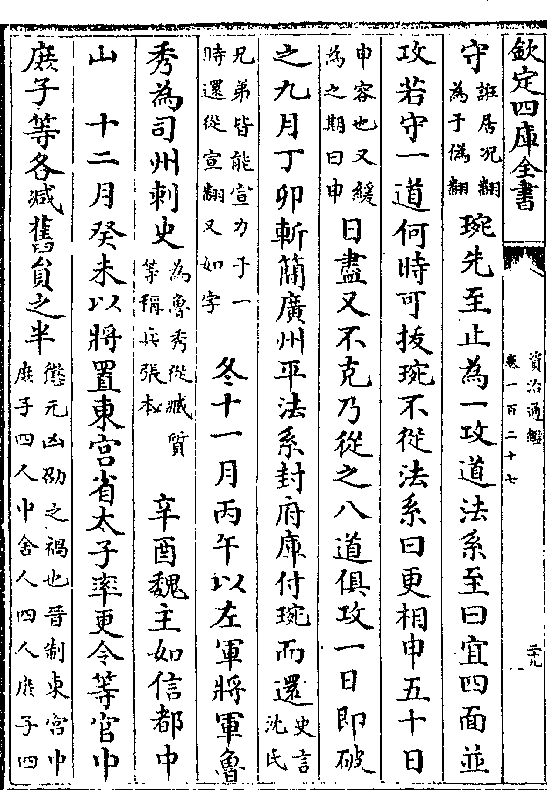 欽定四庫全書
資治通鑑
卷一百二十七
二十九
守誑居況翻
為于偽翻琬先至止為一攻道法系至曰宜四面並
攻若守一道何時可拔琬不從法系曰更相申五十日
申容也又緩
為之期曰申日盡又不克乃從之八道俱攻一日即破
之九月丁卯斬簡廣州平法系封府庫付琬而還史言
沈氏
兄弟皆能宣力于一
時還從宣翻又如字冬十一月丙午以左軍將軍魯
秀為司州刺史為魯秀從臧質
等稱兵張本辛酉魏主如信都中
山 十二月癸未以將置東宮省太子率更令等官中
庶子等各减舊貟之半懲元凶劭之禍也晉制東宮中
庶子四人中舍人四人庶子四